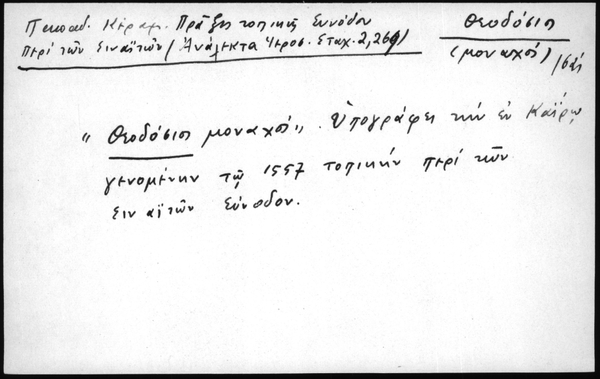 Παπαδ. Κεραμ. Πράξις τοπικῆς Συνόδου
περί τῶν Σιναϊτῶν (Ἀνάλεκτα Ἱεροσ. Σταχ. 2, 269)
Θεοδόσιος
(μοναχός)
"Θεοδόσιος μοναχός". Ὑπογράφει τήν ἐν Καΐρῳ
γενομένην τῷ 1557 τοπικήν περί τῶν
Σιναϊτῶν Σύνοδον.